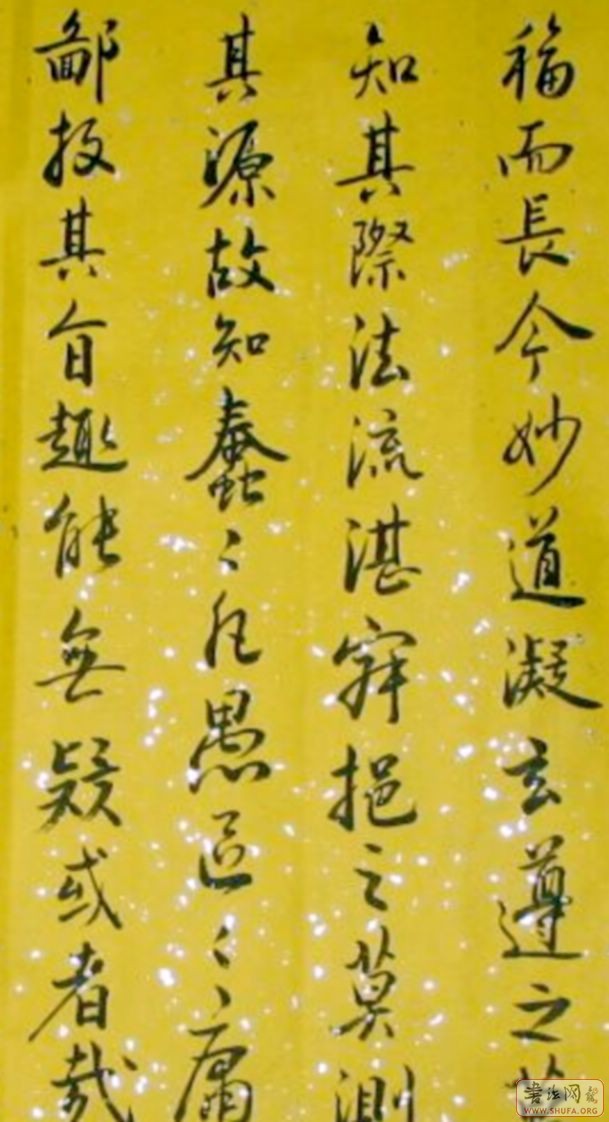 福而長今妙道凝玄遵之莫
知其際法流湛寂挹之莫測
其源故知蠢〻凡愚區〻庸
鄙投其旨趣能無疑或者哉
書法网
WWW.SHUFA.ORG